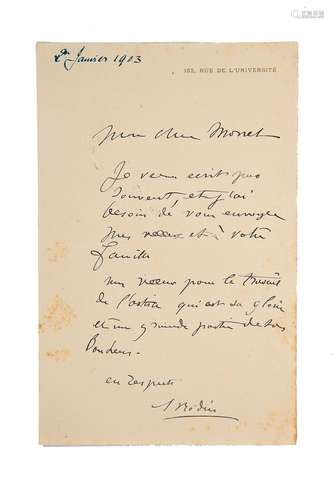 2 Janvier 1903
182, RUE DE L'UNIVERSITÉ
mon cher Monet
Je vous ecris pas
souvent, et j'ai
besoin de vous envoyer
mes voeux et à votre
famille
mes voeux pour le travail
de l'artiste qui est sa gloire
et une grande partie de son
bonheur.
en respects
A Rodin